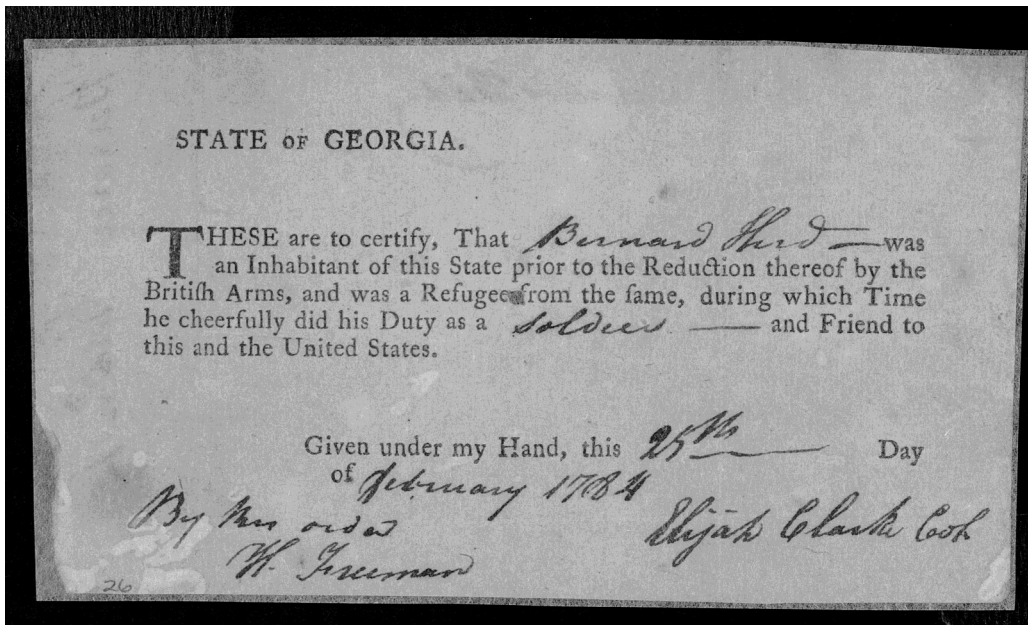 STATE OF GEORGIA.
THESE are to certify, That Bernard Herd — was
an Inhabitant of this State prior to the Reduction thereof by the
Britiſh Arms, and was a Refugee from the ſame, during which Time
he cheerfully did his Duty as a Soldier — and Friend to
this and the United States.
Given under my Hand, this 25th — Day
of february 1784
By his order
Elijah Clark Col
H. Freeman
26